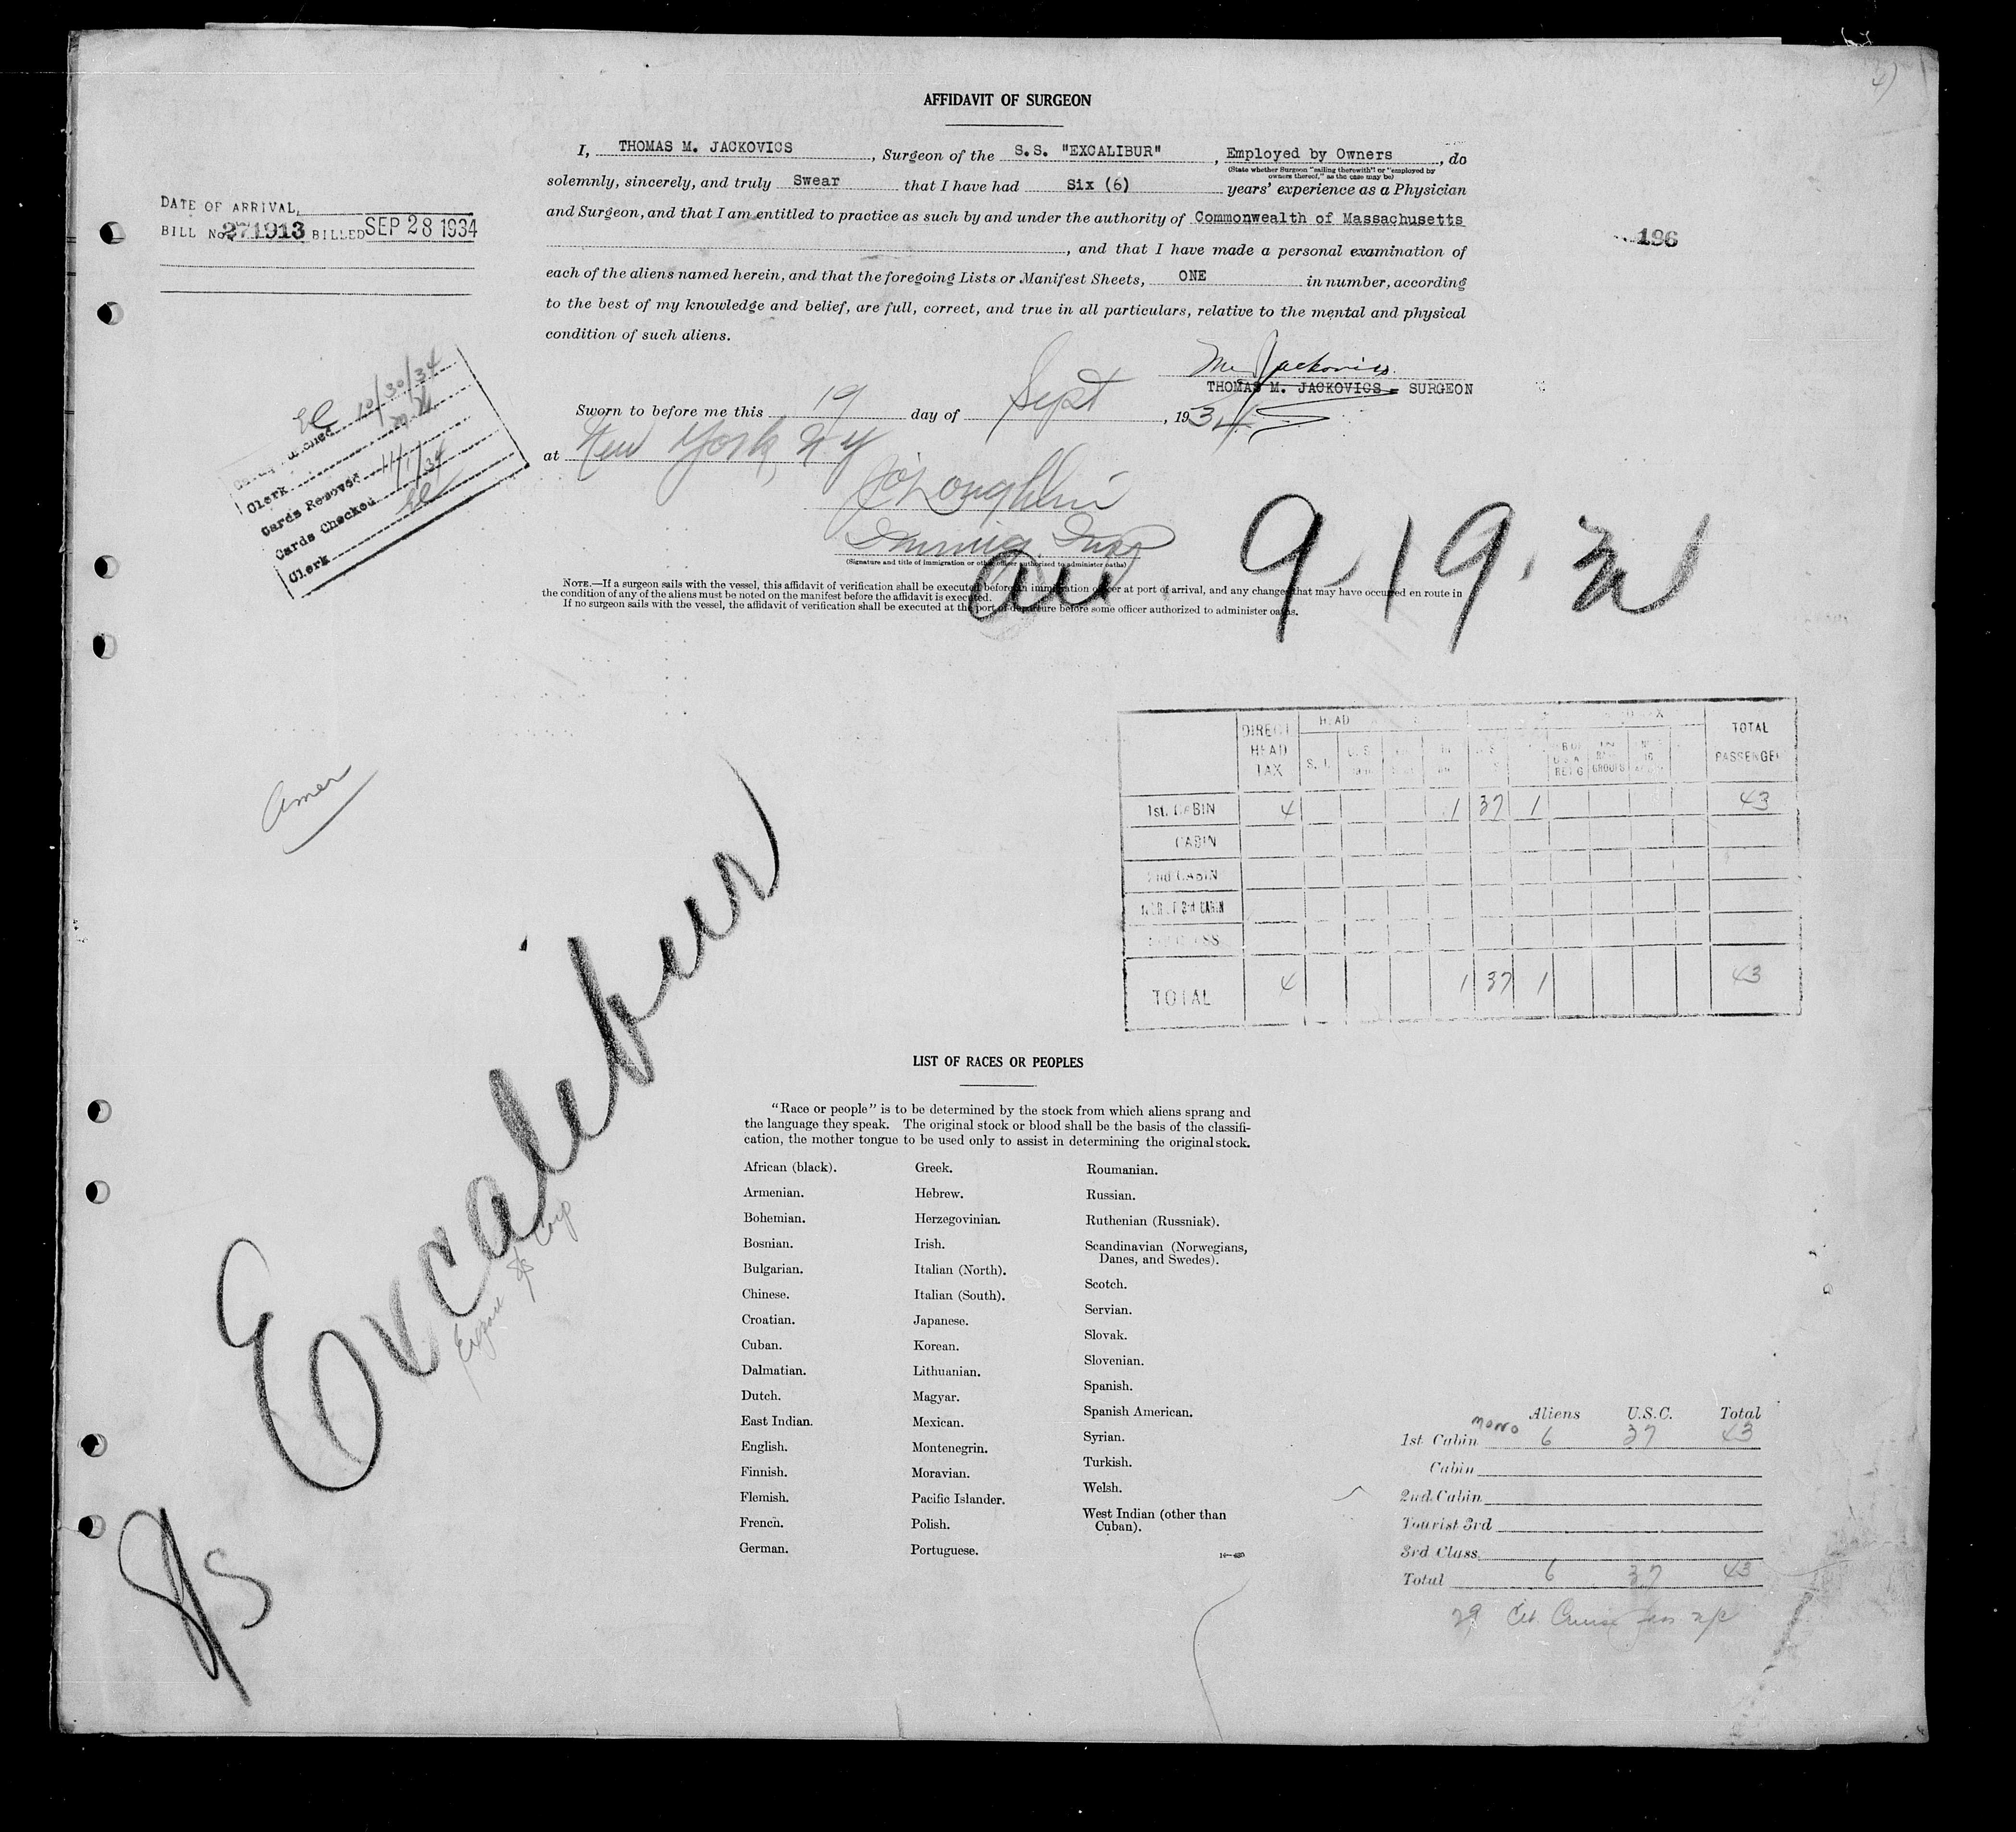 AFFIDAVIT OF SURGEON
I, THOMAS M. JACKOVICS, Surgeon of the S.S. "EXCALIBUR", Employed by Owners, do
(State whether Surgeon "sailing therewith" or "employed by
owners thereof," as the case may be)
solemnly, sincerely, and truly Swear that I have had Six (6) years' experience as a Physician
and Surgeon, and that I am entitled to practice as such by and under the authority of Commonwealth of Massachusetts
, and that I have made a personal examination of
each of the aliens named herein, and that the foregoing Lists or Manifest Sheets, ONE in number, according
to the best of my knowledge and belief, are full, correct, and true in all particulars, relative to the mental and physical
condition of such aliens.
DATE OF ARRIVAL,
BILL No. 271913 BILLED SEP 28 1934
196
Jackovics
THOMAS M. JACKOVICS = SURGEON
Sworn to before me this 19 day of Sept, 1934
at New York, N Y
O'Loughlin
Immig. Insp
(Signature and title of immigration or other officer authorized to administer oaths)
10/30/34
Clerk
Cards Removed 11/1/34
Cards Checked
Clerk
9.19.
NOTE.—If a surgeon sails with the vessel, this affidavit of verification shall be executed before an immigration officer at port of arrival, and any changes that may have occurred en route in
the condition of any of the aliens must be noted on the manifest before the affidavit is executed.
If no surgeon sails with the vessel, the affidavit of verification shall be executed at the port of departure before some officer authorized to administer oaths.
Amer
Excalibur
Export SS Corp
SS
DIRECT HEAD TAX HEAD TOTAL PASSENGER
1st. CABIN 4 1 37 1 43
CABIN
2nd CABIN
TOTAL 4 1 37 1 43
LIST OF RACES OR PEOPLES
"Race or people" is to be determined by the stock from which aliens sprang and
the language they speak. The original stock or blood shall be the basis of the classifi-
cation, the mother tongue to be used only to assist in determining the original stock.
African (black).
Armenian.
Bohemian.
Bosnian.
Bulgarian.
Chinese.
Croatian.
Cuban.
Dalmatian.
Dutch.
East Indian.
English.
Finnish.
Flemish.
French.
German.
Greek.
Hebrew.
Herzegovinian.
Irish.
Italian (North).
Italian (South).
Japanese.
Korean.
Lithuanian.
Magyar.
Mexican.
Montenegrin.
Moravian.
Pacific Islander.
Polish.
Portuguese.
Roumanian.
Russian.
Ruthenian (Russniak).
Scandinavian (Norwegians,
Danes, and Swedes).
Scotch.
Servian.
Slovak.
Slovenian.
Spanish.
Spanish American.
Syrian.
Turkish.
Welsh.
West Indian (other than
Cuban).
Aliens U.S.C. Total
1st Cabin 6 37 43
Cabin
2nd Cabin
Tourist 3rd
3rd Class
Total 6 37 43
29